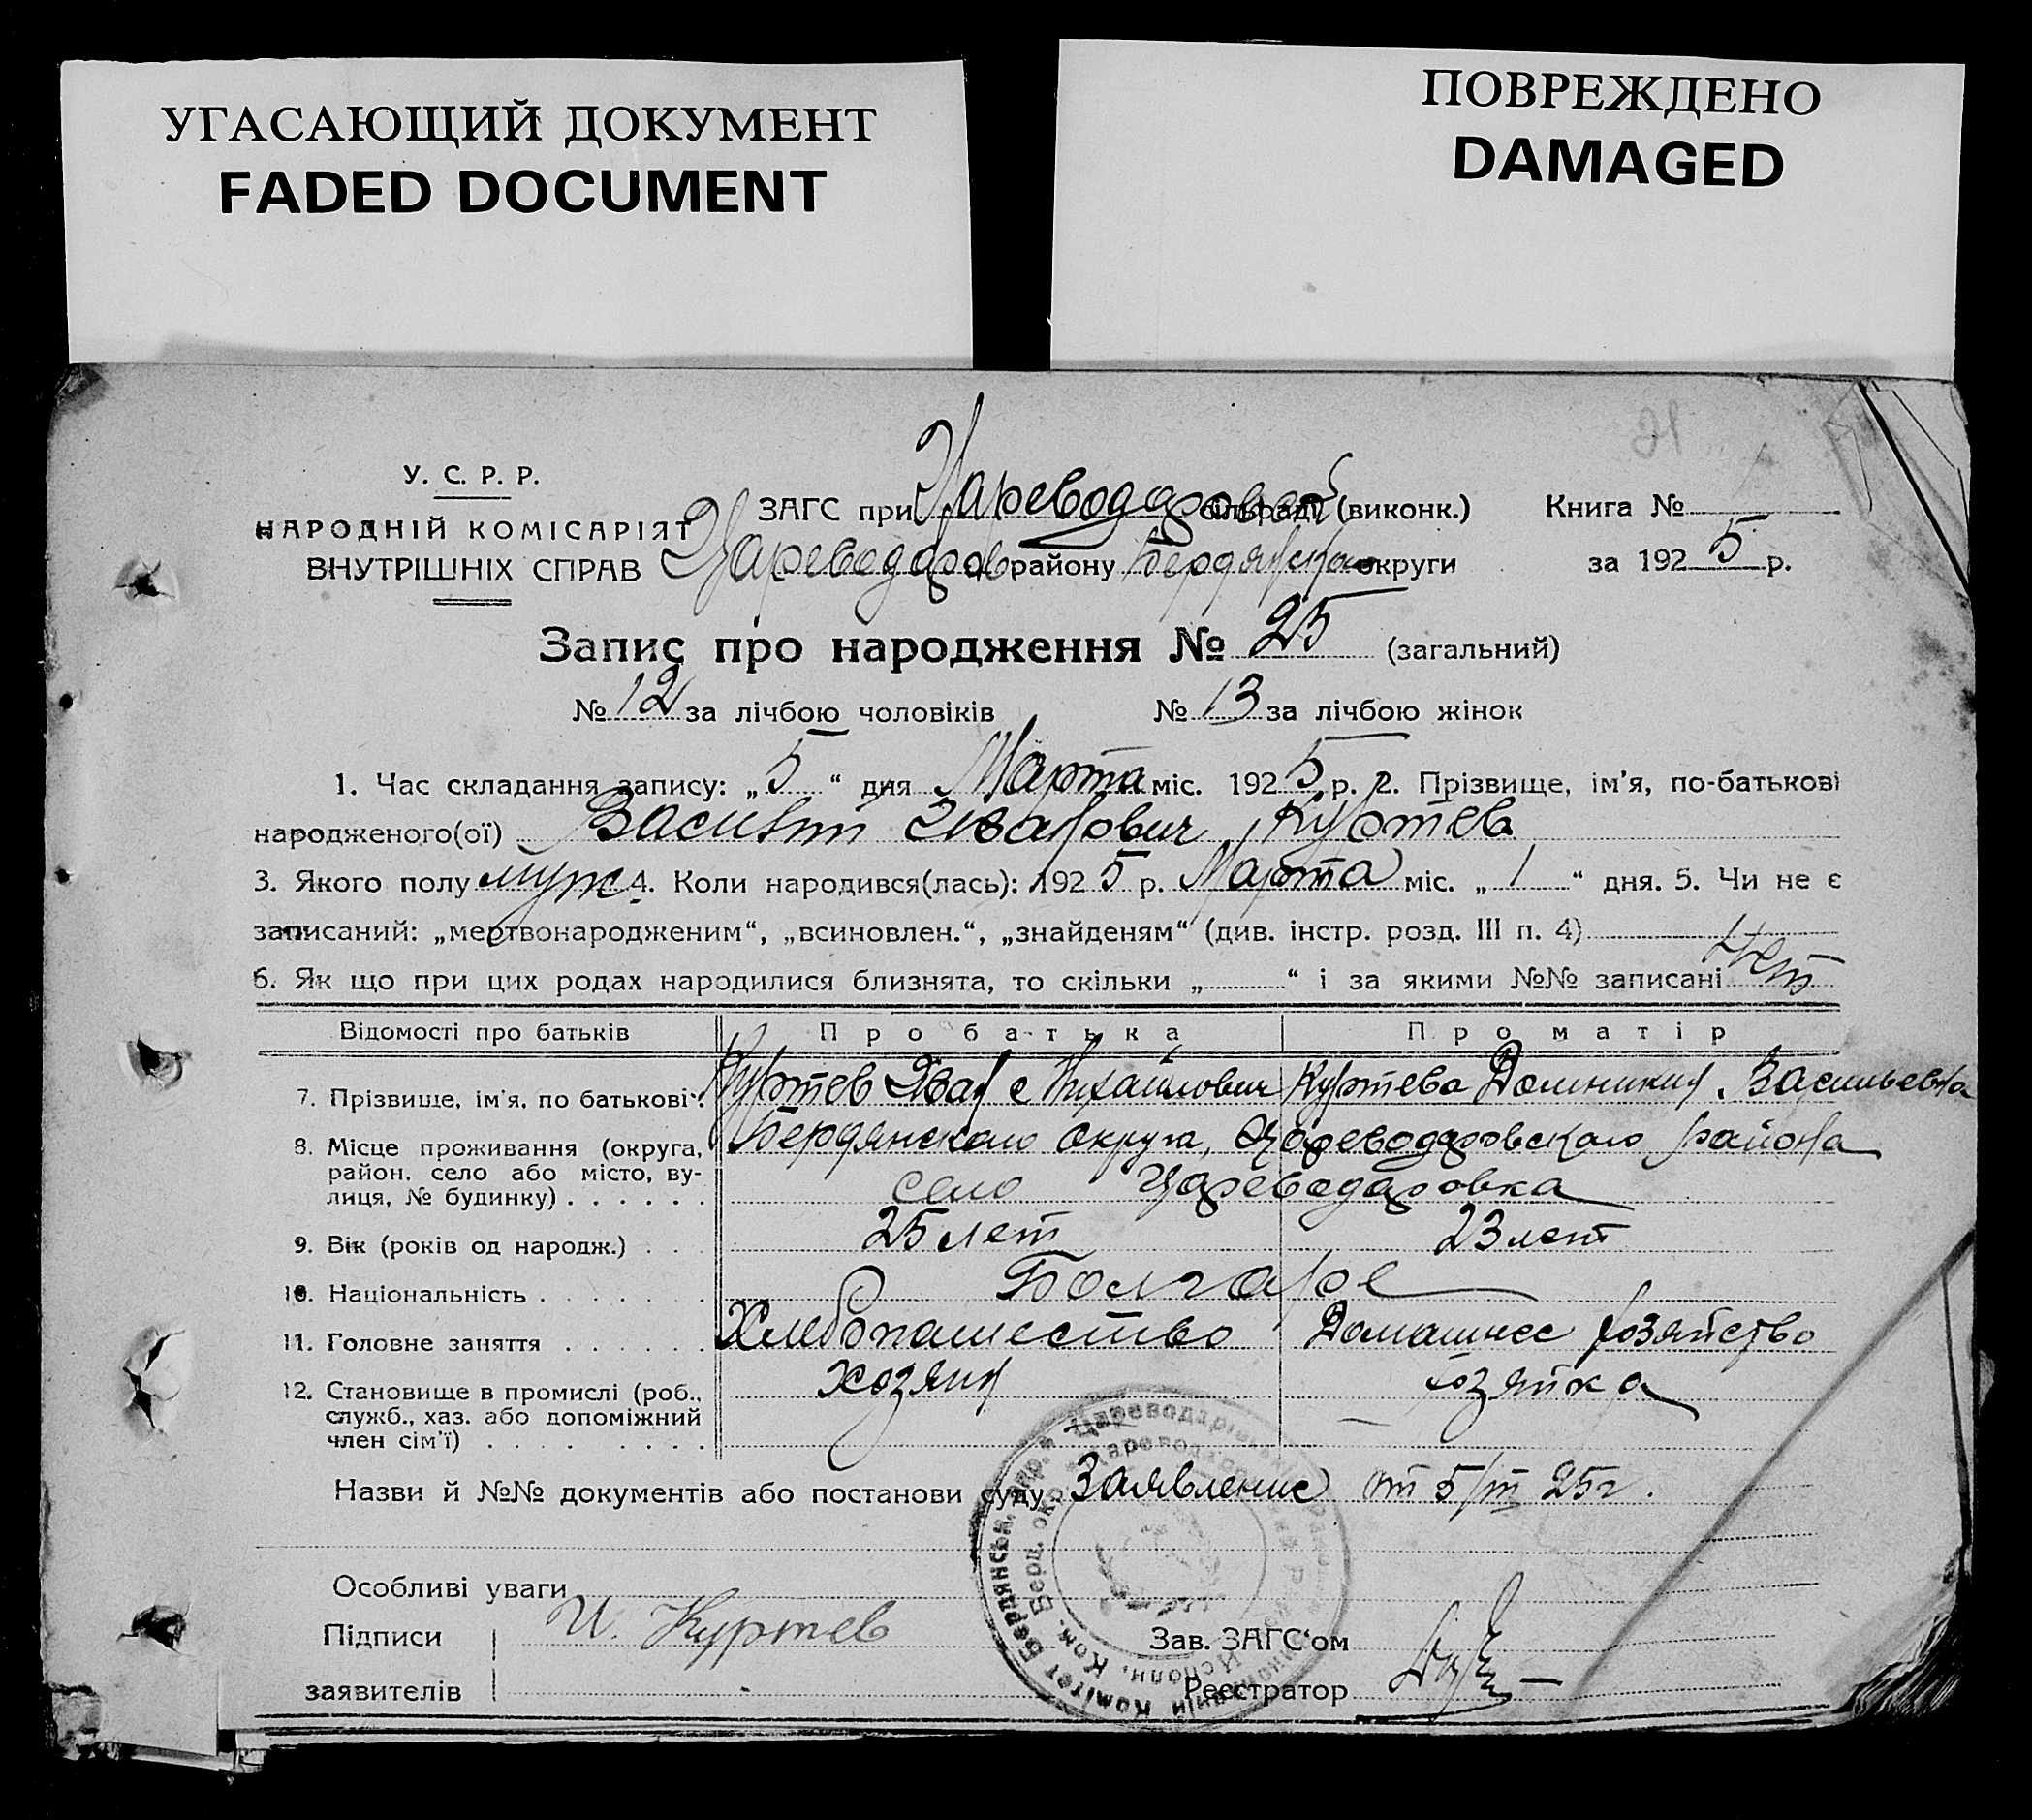 УГАСАЮЩИЙ ДОКУМЕНТ
FADED DOCUMENT
ПОВРЕЖДЕНО
DAMAGED
У. С. Р. Р.
НАРОДНІЙ КОМІСАРІЯТ
ВНУТРІШНІХ СПРАВ
ЗАГС при Цареводаровск сільраді (виконк.) Книга №
Цареводаров району Бердянска округи за 1925 р.
Запис про народження № 25 (загальний)
№ 12 за лічбою чоловіків № 13 за лічбою жінок
1. Час складання запису: „5“ дня Марта міс. 1925 р. 2. Прізвище, ім'я, по-батькові
народженого(ої) Василий Иванович Куртев
3. Якого полу муж. 4. Коли народився(лась): 1925 р. Марта міс. „1“ дня. 5. Чи не є
записаний: „мертвонародженим“, „всиновлен.“, „знайденям“ (див. інстр. розд. III п. 4)
6. Як що при цих родах народилися близнята, то скільки „ “ і за якими №№ записані нет
Відомості про батьків Про батька Про матір
7. Прізвище, ім'я, по батькові. Куртев Иван Михайлович Куртева Домникия Васильевна
8. Місце проживання (округа, Бердянского округа, Цареводаровского района
район, село або місто, ву-
лиця, № будинку) . . . . . . село Цареводаровка
9. Вік (років од народж.) . . . 25 лет 23 лет
10. Національність . . . . . . . Болгаре
11. Головне заняття . . . . . . Хлебопашество Домашнее хозяйство
12. Становище в промислі (роб., хозяин хозяйка
служб., хаз. або допоміжний
член сім'ї) . . . . . . . . .
Назви й №№ документів або постанови суду Заявление от 5/III 25 г.
Особливі уваги
Підписи И. Куртев Зав. ЗАГС'ом
заявителів Реєстратор